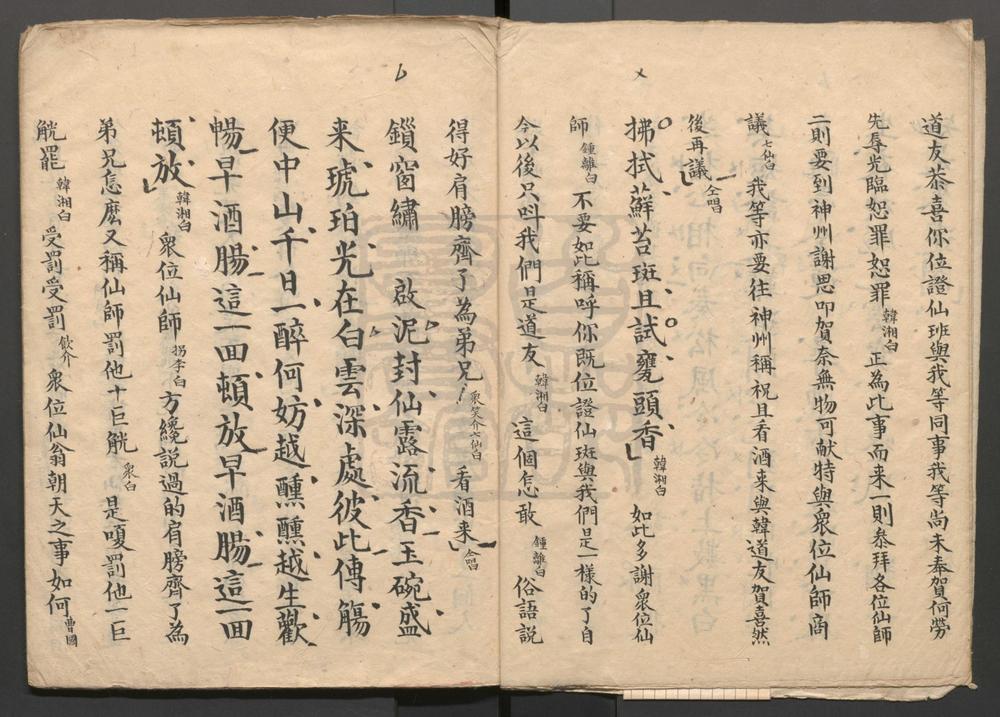 道友恭喜你位證仙班與我等同事我等尚未奉賀何勞
先辱光臨恕罪恕罪韓湘白正為此事而来一則叅拜各位仙師
二則要到神州謝恩叩賀奈無物可献特與衆位仙師商
議七仙白我等亦要往神州稱祝且看酒来與韓道友賀喜然
後再議仝唱
拂拭蘚苔斑且試甕頭香韓湘白如此多謝衆位仙
師鍾離白不要如此稱呼你既位證仙班與我們是一樣的了自
今以後只叫我們是道友韓湘白這個怎敢鍾離白俗語說
得好肩膀齊了為弟兄衆笑介六仙白看酒来仝唱
鎖窗繡啟泥封仙露流香玉碗盛
来琥珀光在白雲深處彼此傳觴
便中山千日一醉何妨越醺醺越生歡
暢早酒腸這一回頓放早酒腸這一回
頓放韓湘白衆位仙師拐李白方纔説過的肩膀齊了為
弟兄怎麽又稱仙師罰他十巨觥衆白是嗄罰他一巨
觥罷韓湘白受罰受罰飲介衆位仙翁朝天之事如何曹國